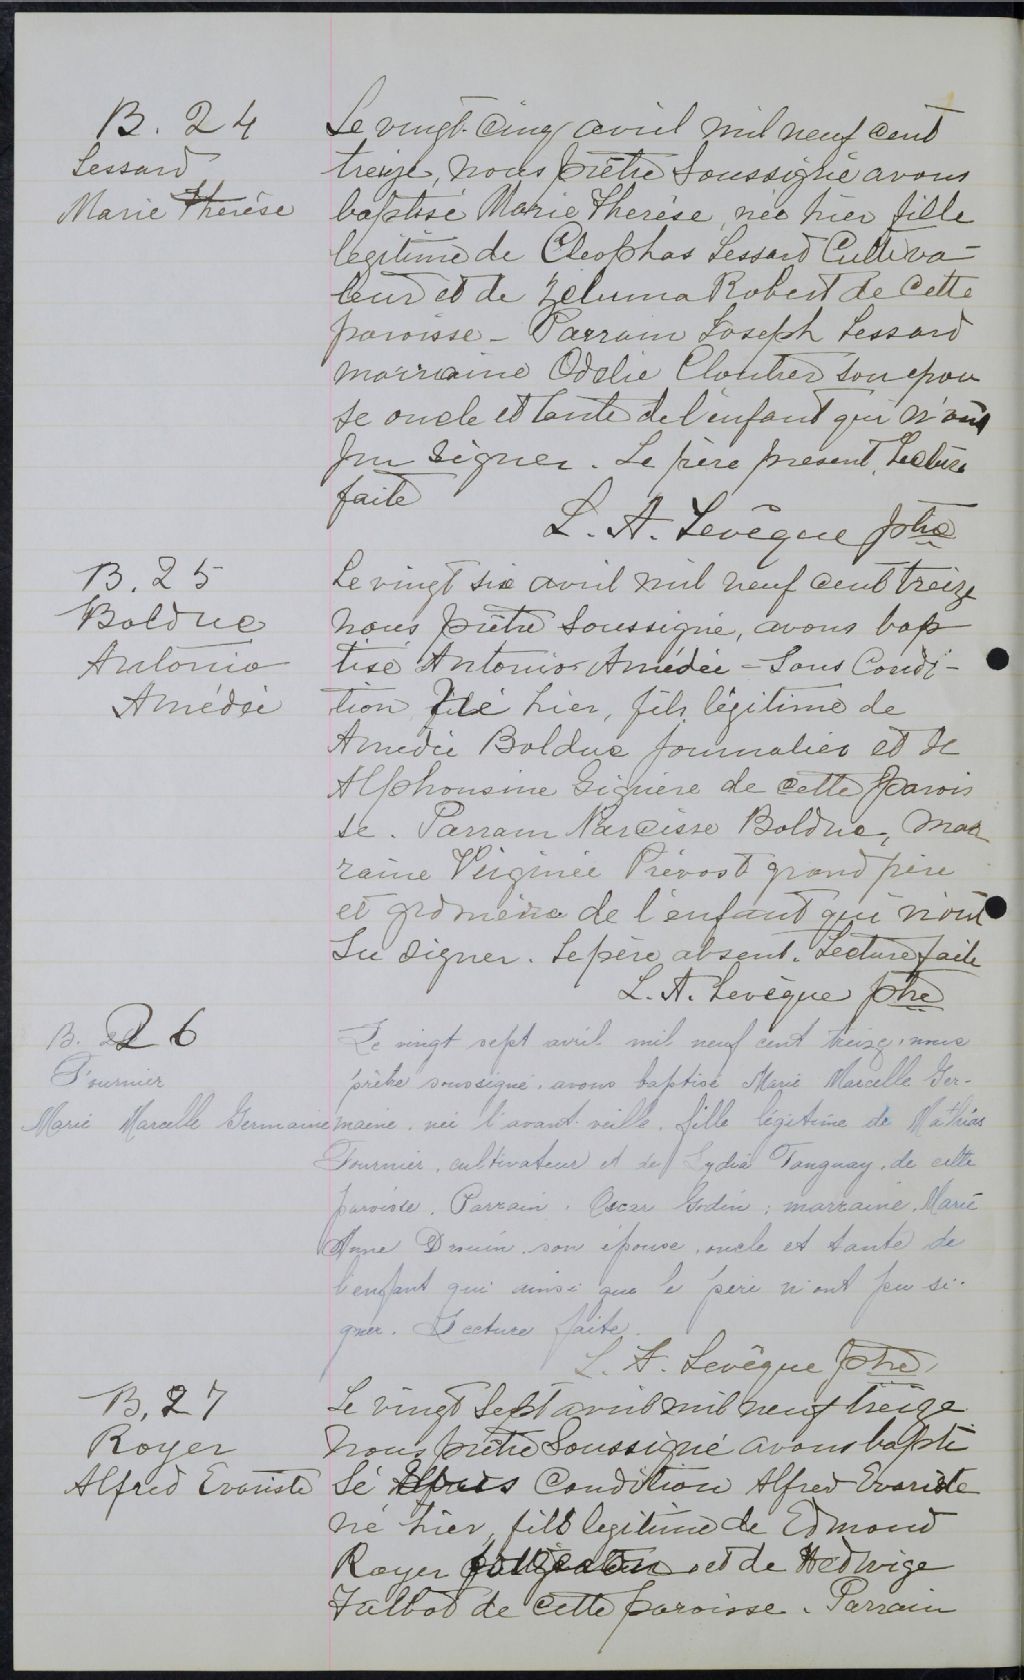 B. 24
Lessard
Marie Therése
Le vingt-cinq avril mil neuf cent
treize, nous prêtre soussigné avons
baptisé Marie Therése, née hier fille
legitime de Cleophas Lessard Cultiva-
teur et de Zeluma Robert de cette
paroisse - Parrain Joseph Lessard
marraine Odelie Cloutier son epou
se oncle et tante de l'enfant qui n'ont
pu signer. Le père present. Lecture
faite
L. A. Levêque ptre
B. 25
Bolduc
Antonio
Amédée
Le vingt six avril mil neuf cent treize
nous prêtre soussigné, avons bap
tisé Antonio Amédée - Sous Condi-
tion né hier, fils légitime de
Amedée Bolduc journalier et de
Alphonsine Giguère de cette parois
se. Parrain Narcisse Bolduc, mar
raine Virginie Prévost grand père
et grdmère de l'enfant qui n'ont
su signer. Le père absent. Lecture faite
L. A. Levêque ptre
B. 26
Fournier
Marie Marcelle Germaine
Le vingt sept avril mil neuf cent treize, nous
prêtre soussigné, avons baptisé Marie Marcelle Ger-
maine, née l'avant-veille, fille légitime de Mathias
Fournier, cultivateur et de Lydia Tanguay, de cette
paroisse. Parrain, Oscar Godin; marraine, Marie
Anne Drouin, son épouse, oncle et tante de
l'enfant qui ainsi que le père n'ont pu si-
gner. Lecture faite.
L. A. Levêque ptre,
B. 27
Royer
Alfred Evariste
Le vingt sept avril mil neuf treize
nous prêtre soussigné avons bapti
sé sous Condition Alfred Evariste
né hier, fils legitime de Edmond
Royer et de Hedwige
Talbot de cette paroisse. Parrain